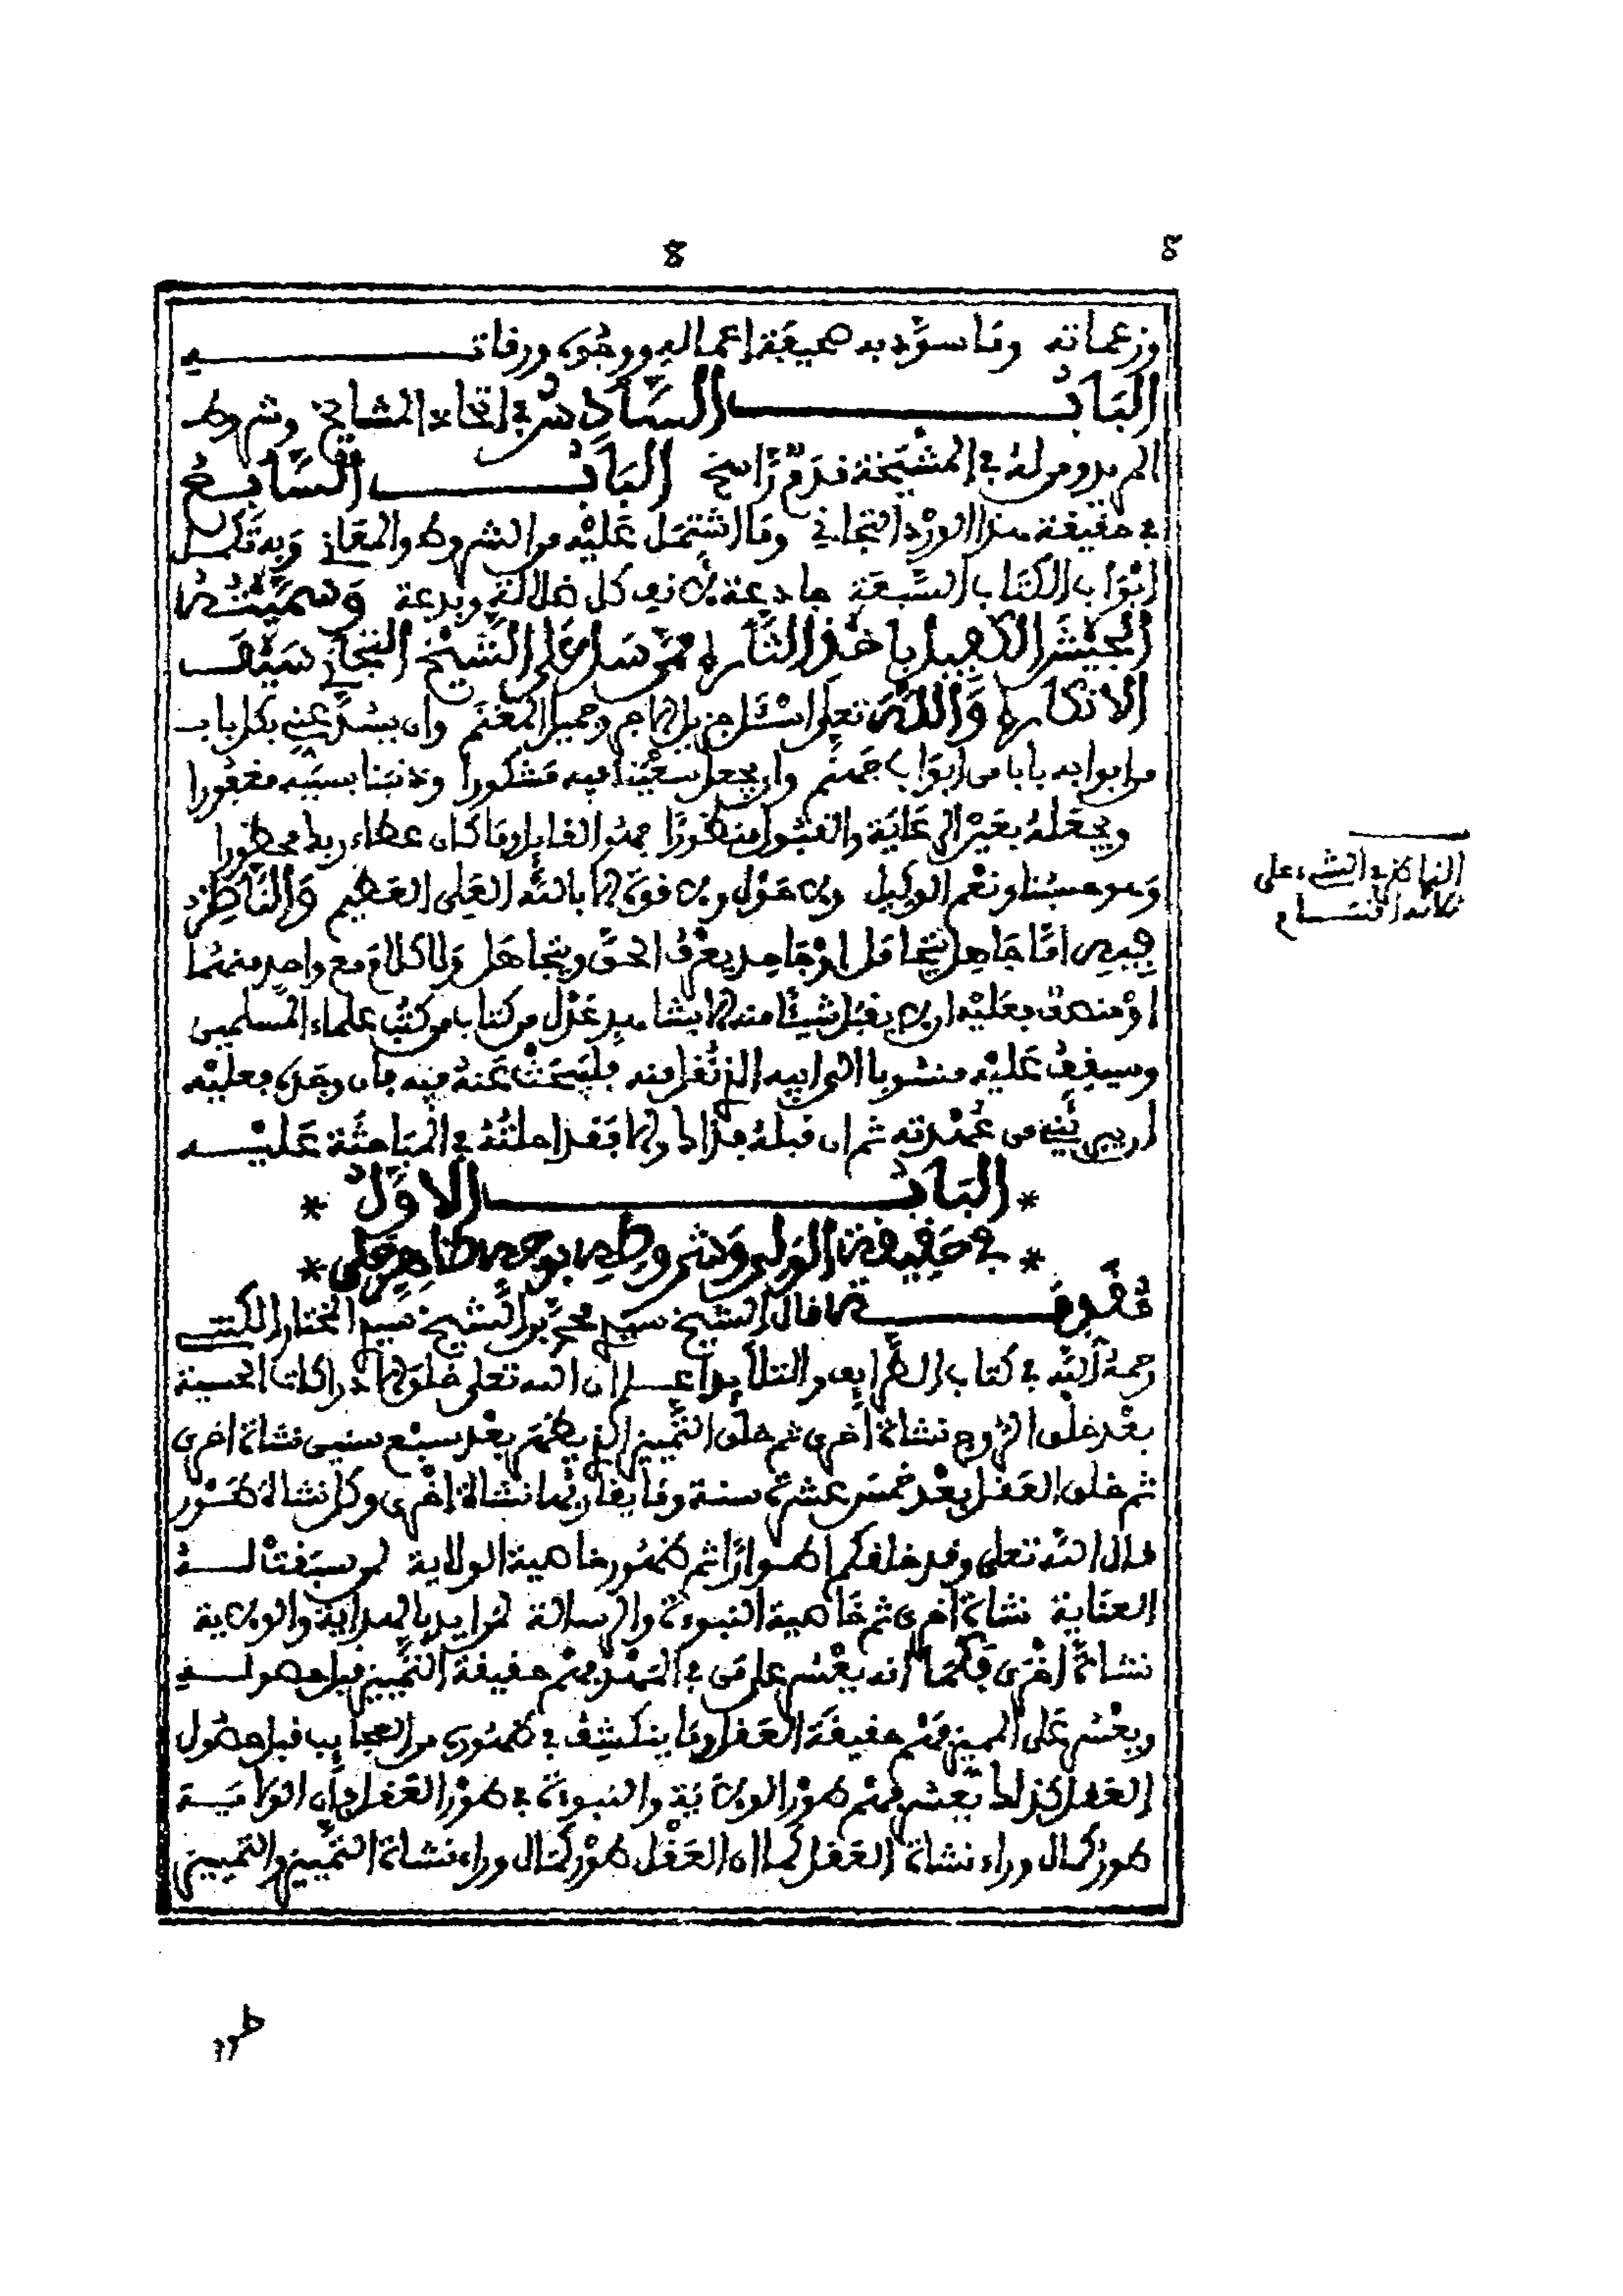 8
8
وزعماته وما سوّد به صحيفة اعماله ووجوه ورقاته
البابُ السَّادِسُ في اتخاذ المشايخ وشروط
المريد ومن له في المشْيَخة قدَمٌ رَاسخ البَابُ السَّابِعُ
في حقيقة هذا الورْدِ التجاني وما اشتمَل عَلَيْه من الشروط والمعَاني وَبِه تَكمل
ابْوَاب الكتَاب السَّبعَة جادعة لانف كل ضلالة وبدعة وَسَميْتُه
الجيْشَ الكفيل باخذ الثَّار ممَّن سَل عَلى الشَّيْخ التجاني سَيْفَ
الانكار وَاللهَ تعلى اسْئَل جزيل وجميل المغنَم وان يسُدَّ عني بكل باب
من ابوابه بابا من ابوَاب جَهنَّم وان يجعل سَعْيَنا فيه مَشكورا وذنبَنا بسببه مغفُورا
ويجعَلهُ بعَيْن الرعَاية والقبُول منظورًا فهُو القايل وما كَان عطاء ربك محظورا
وَهو حسبُنا ونعْم الوكيل ولا حَوْل ولا قوَّة الا بالله العَلى العَظيم وَالنَّاظِرُ
فِيهِ امَّا جَاهِل يتجاهَل اوْ جَاحِد يعْرفُ الحق ويتجاهَل وَلا كلامَ مع واحِد منهُما
اوْ منصف فعَلَيْه ان لا يقبَل شيئًا منه الا بشاهِد عَدْل من كتاب من كتُب علماء المسلمين
وسيقِفُ عَليْه منسُوبا الى رابيه الذي نُقل منه فليَبحَثْ عَنهُ فيه فان وجَدَه فعليْه
ان يبرئَني من عُهْدته ثم ان قبلهُ فذاك والا فقد احلتُهُ في المبَاحثَة عَليْه
* البَابُ الاوَّلُ *
* في حَقِيقة الوَلي وَشروطِهِ بوجهٍ ظاهِرٍ جَلي *
مُقَدِّمَة قال الشيخ سيدي محمد بن الشيخ سيدي المختار الكنتي
رحمهُ اللّه في كتاب الطَّرايف والتلايد اعلم ان الله تعلى خلَق الادراكات الحسية
بعْد خلْق الرُّوح نشاة اخرى ثم خلق التَّمييز الذي يظهَر بعْد سبْع سنين نشاة اخرى
ثم خلق العَقل بعْد خمسَ عشرة سنة ومَا يقاربُها نشاة اخْرى وكل نشاة طَور
قال الله تعلى وقد خلقكم اطوارًا ثم ظهُور خاصية الولاية لمن سبَقتْ له
العنَاية نشاة اخرى ثم خَاصية النبوءة والرسالة لمن ايد بالهداية والولاية
نشاةً اخْرَى فكَمَا انه يعْسُر على مَن في المَهْد فهْم حقيقة التَّمييز قبل حصوله
ويعْسُر عَلى المميز فَهْم حقيقَة العَقل وما ينكشِف في طهُوره من العجايب قبل حصُول
العَقل كذلك يعْسُر فهْم طوْر الولاية والنبوءة في طوْر العَقل فان الولاية
طوْر كمال وراء نشاة العَقل كما ان العَقْل طوْر كمَال وراء نشاة التمييز والتمييز
النّاظر في الشيء على
ثلاثة اقسَام
طور